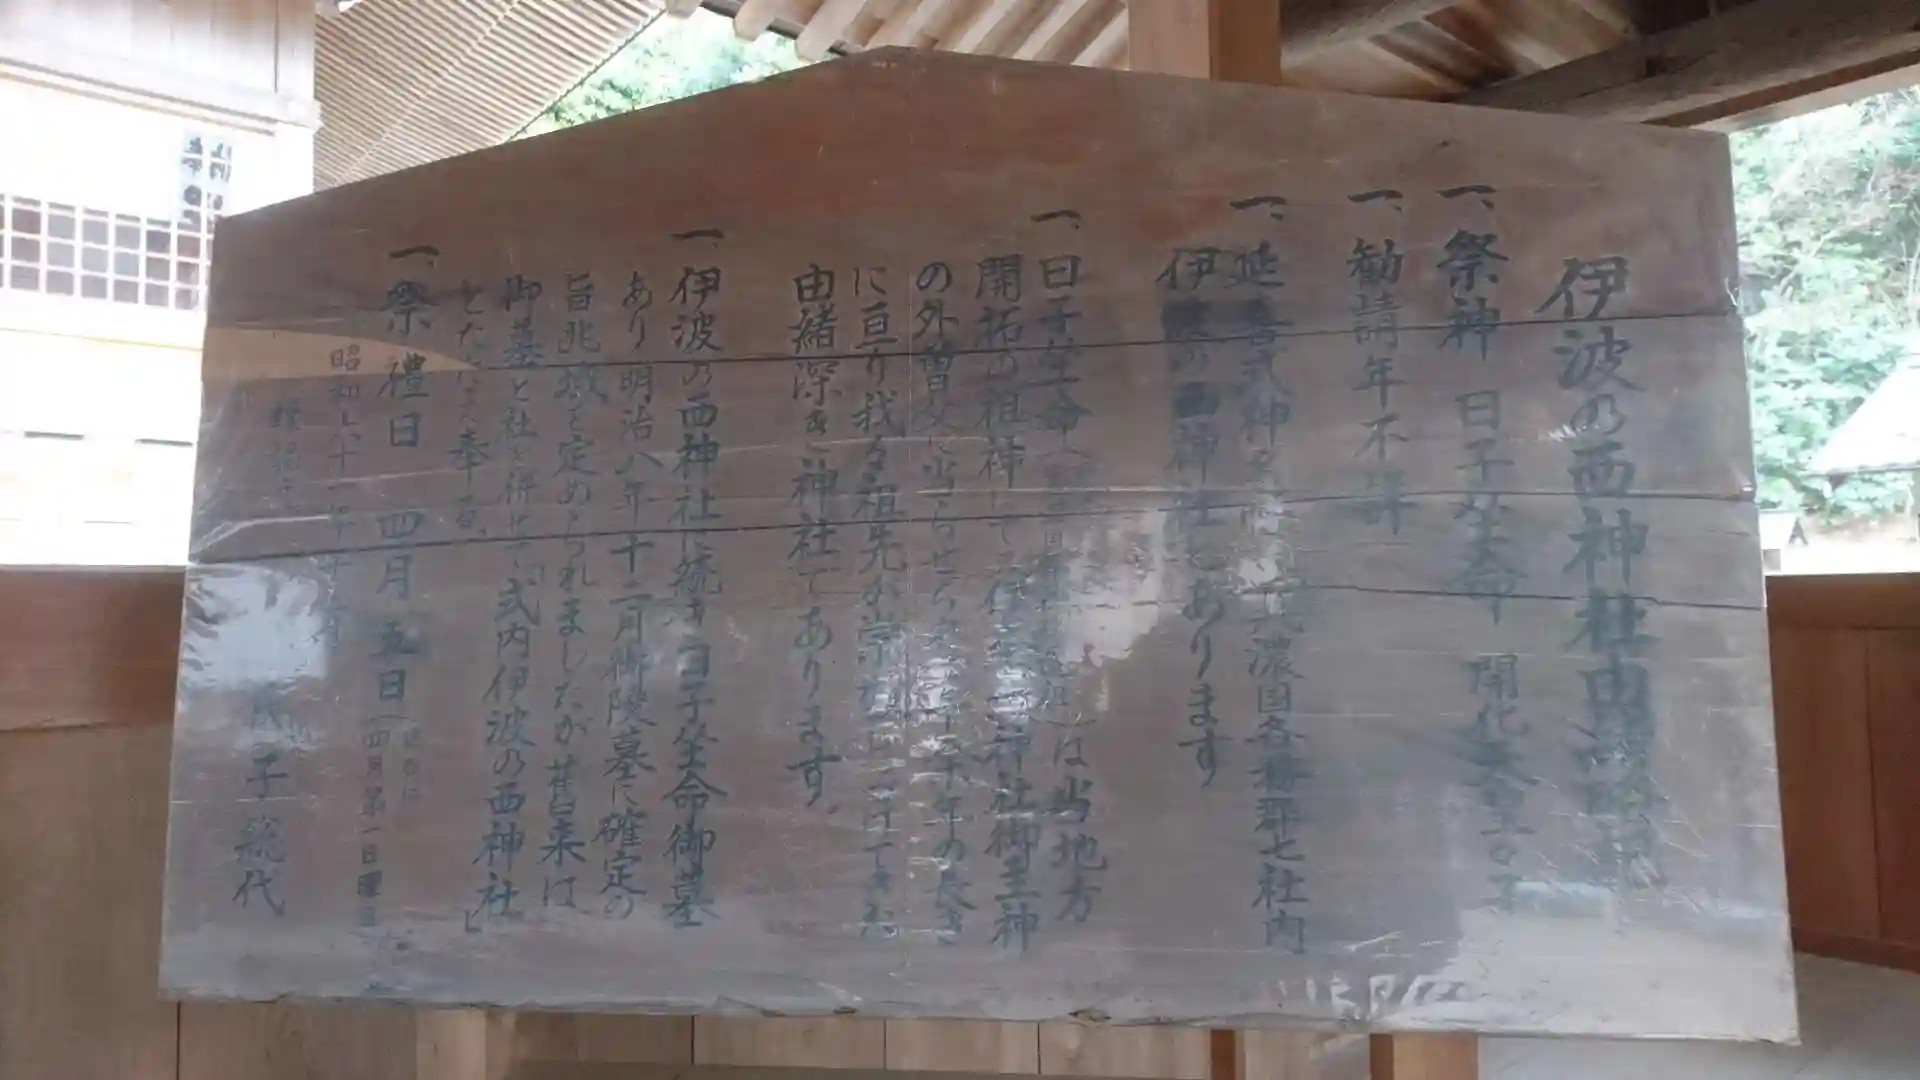 伊波の西神社由諸略記
一、祭神 日子坐命 開化天皇の子
一、勧請年不詳
一、延喜式神 美濃国各務郡七社内
伊波の西神社であります
一、日子坐命 は当地方
開拓の祖神にして 神社御主神
の外曽父に当らせ 千年の長き
に亘り我等祖先が崇 てきた
由緒深き神社であります。
一、伊波の西神社に続き日子坐命御墓
あり明治八年十二月御陵墓に確定の
旨兆域を定められましたが昔来は
御墓と社を併せて「式内伊波の西神社」
ととなへ奉る。
一、祭禮日 四月五日
(四月第一日曜日)
昭和 十一年
氏子総代